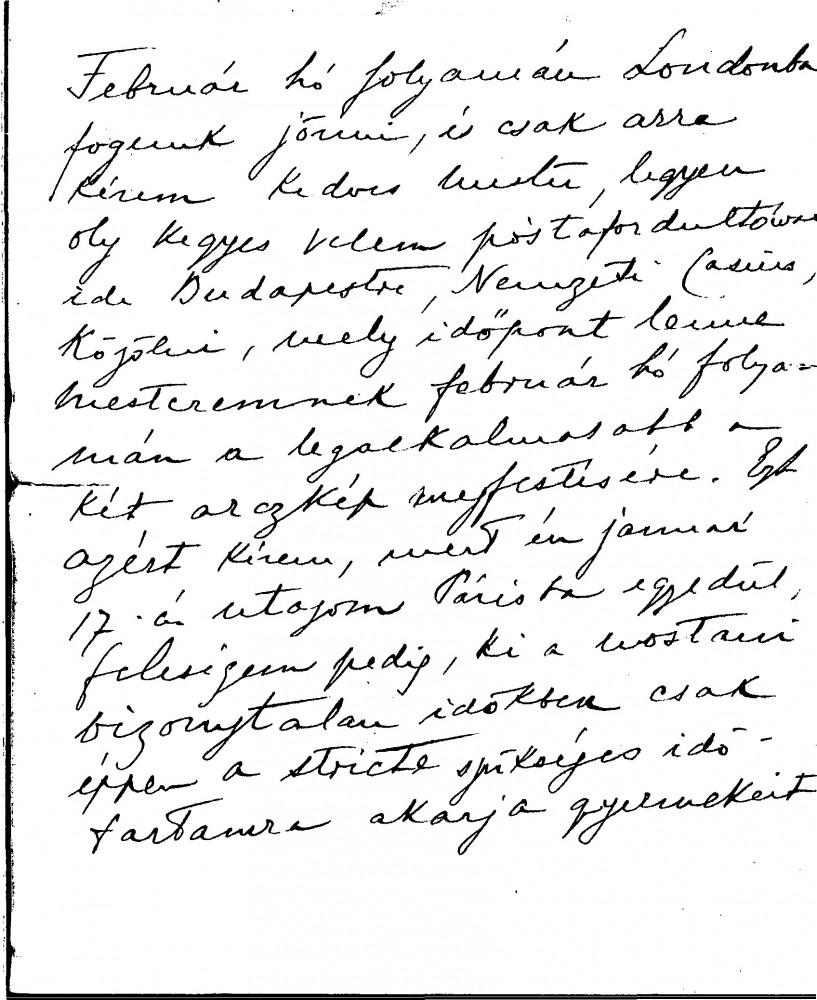 Február hó folyamán Londonba
fogunk jönni, és csak arra
kérem kedves mester, legyen
oly kegyes velem póstafordultával
ide Budapestre, Nemzeti Casino,
közölni, mely időpont lenne
mesteremnek február hó folya=
mán a legalkalmasabb a
két arczkép megfestésére. Ezt
azért kérem, mert én január
17.-én utazom Párisba egyedül,
feleségem pedig, ki a mostani
bizonytalan időkben csak
éppen a stricte szükséges idő-
tartamra akarja gyermekeit